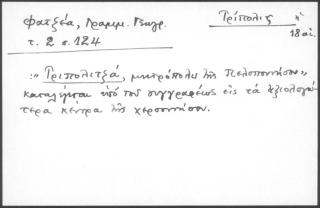 Φατζέα, Γραμμ. Γεωγρ.
τ. 2 σ. 124
Τρίπολις
18 αἰ.
:" Τριπολιτζά, μητρόπολις τῆς Πελοποννήσου"
καταλέγεται ὑπό τοῦ συγγραφέως εἰς τά ἀξιολογώ-
τερα κέντρα τῆς χερσοννήσου.